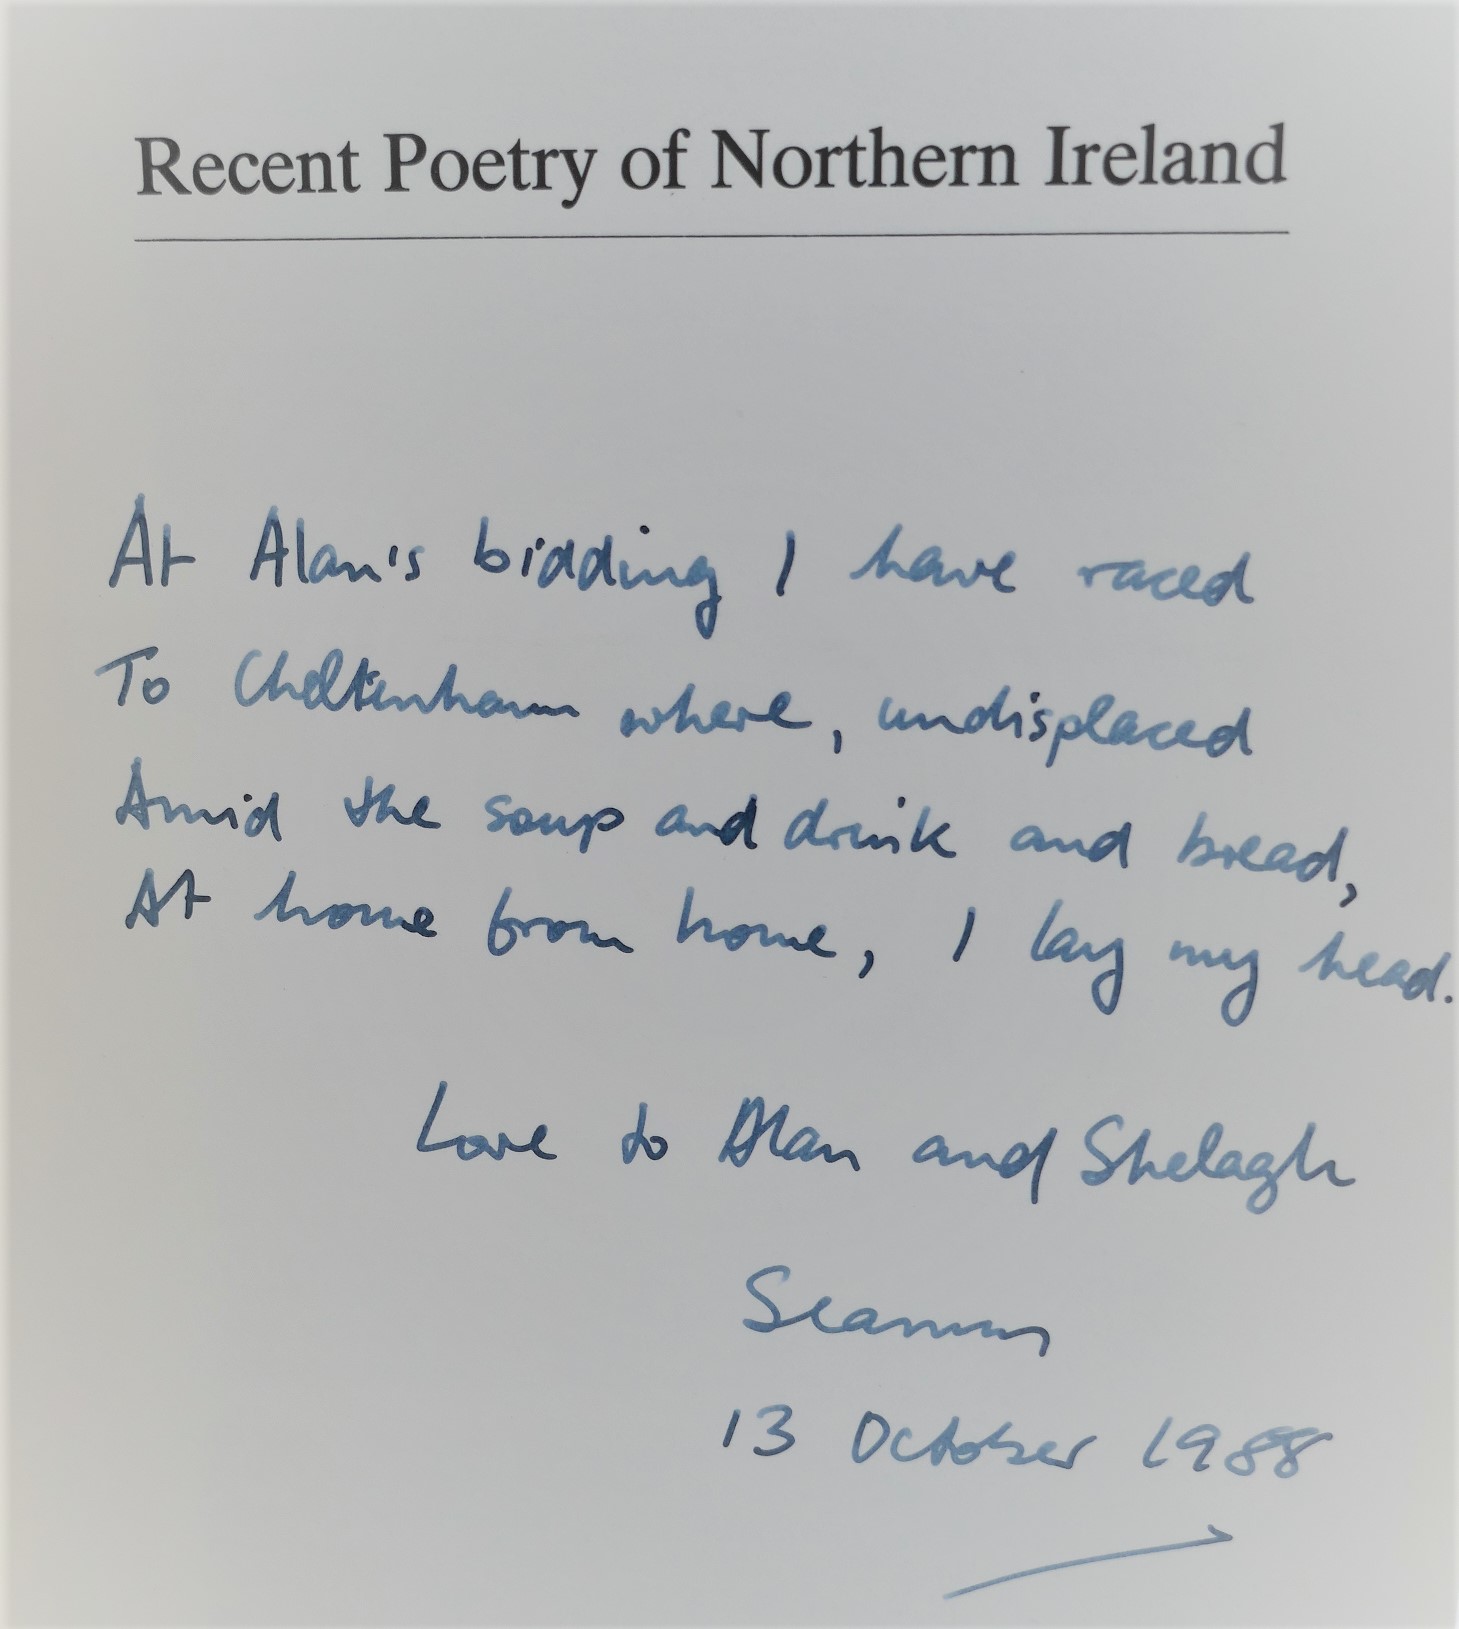 Recent Poetry of Northern Ireland
At Alan's bidding I have raced
To Cheltenham where, undisplaced
Amid the soup and drink and bread,
At home from home, I lay my head.
Love to Alan and Shelagh
Seamus
13 October 1988